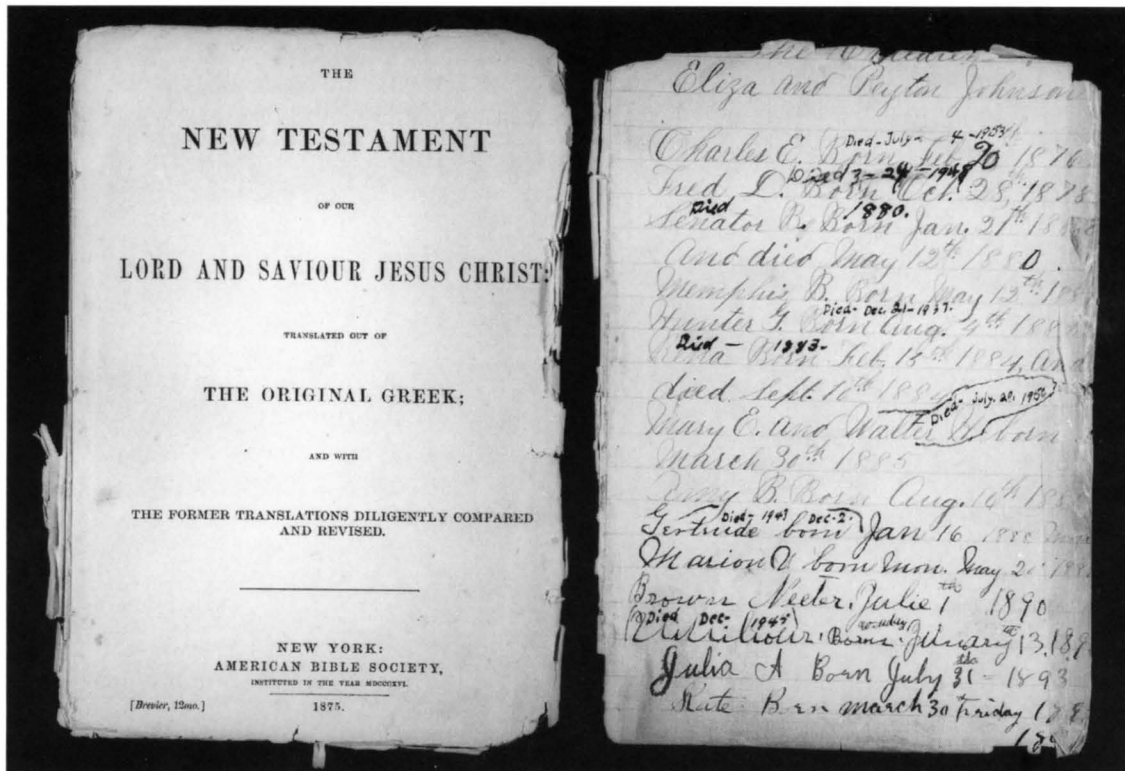 THE
NEW TESTAMENT
OF OUR
LORD AND SAVIOUR JESUS CHRIST:
TRANSLATED OUT OF
THE ORIGINAL GREEK;
AND WITH
THE FORMER TRANSLATIONS DILIGENTLY COMPARED
AND REVISED.
NEW YORK:
AMERICAN BIBLE SOCIETY,
INSTITUTED IN THE YEAR MDCCCXVI.
[Brevier, 12mo.]
1875.
The
Eliza and Peyton Johnson
Died - July - 4 - 1953
Charles E. Born Feb 20 1876
Died 3 - 24 - 1948
Fred D. Born Oct. 28, 1878
Died 1880.
Senator B. Born Jan. 21th
And died May 12th 1880.
Memphis B. Born May 12th
Died - Dec. 21 - 1937.
Hunter G. Born Aug. 4th
Died - 1883 -
Born Feb. 15th 1884, And
died Sept. 10th 1884
Died - July. 28, 195
Mary E. And Walter H. born
March 30th 1885
Amy B. Born Aug. 16th
Died - 1943 Dec - 2.
Gertrude born Jan 16 1888
Marion V born Mon. May
Brown Neeter. Julie 1th 1890
Died Dec - 1945
Born 13, 189
Julia A Born July 31 - 1893
Kate Born march 30 Friday